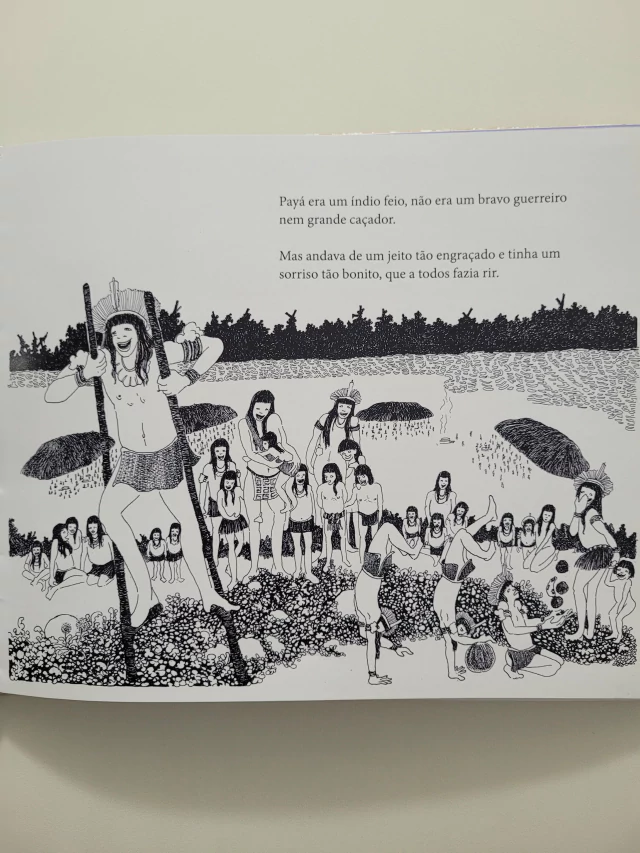 Payá era um índio feio, não era um bravo guerreiro
nem grande caçador.
Mas andava de um jeito tão engraçado e tinha um
sorriso tão bonito, que a todos fazia rir.